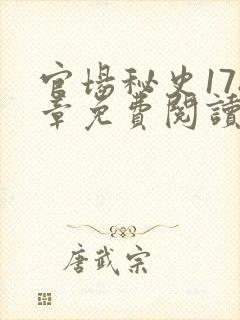 官場秘史17
章免費閱讀
唐武宗